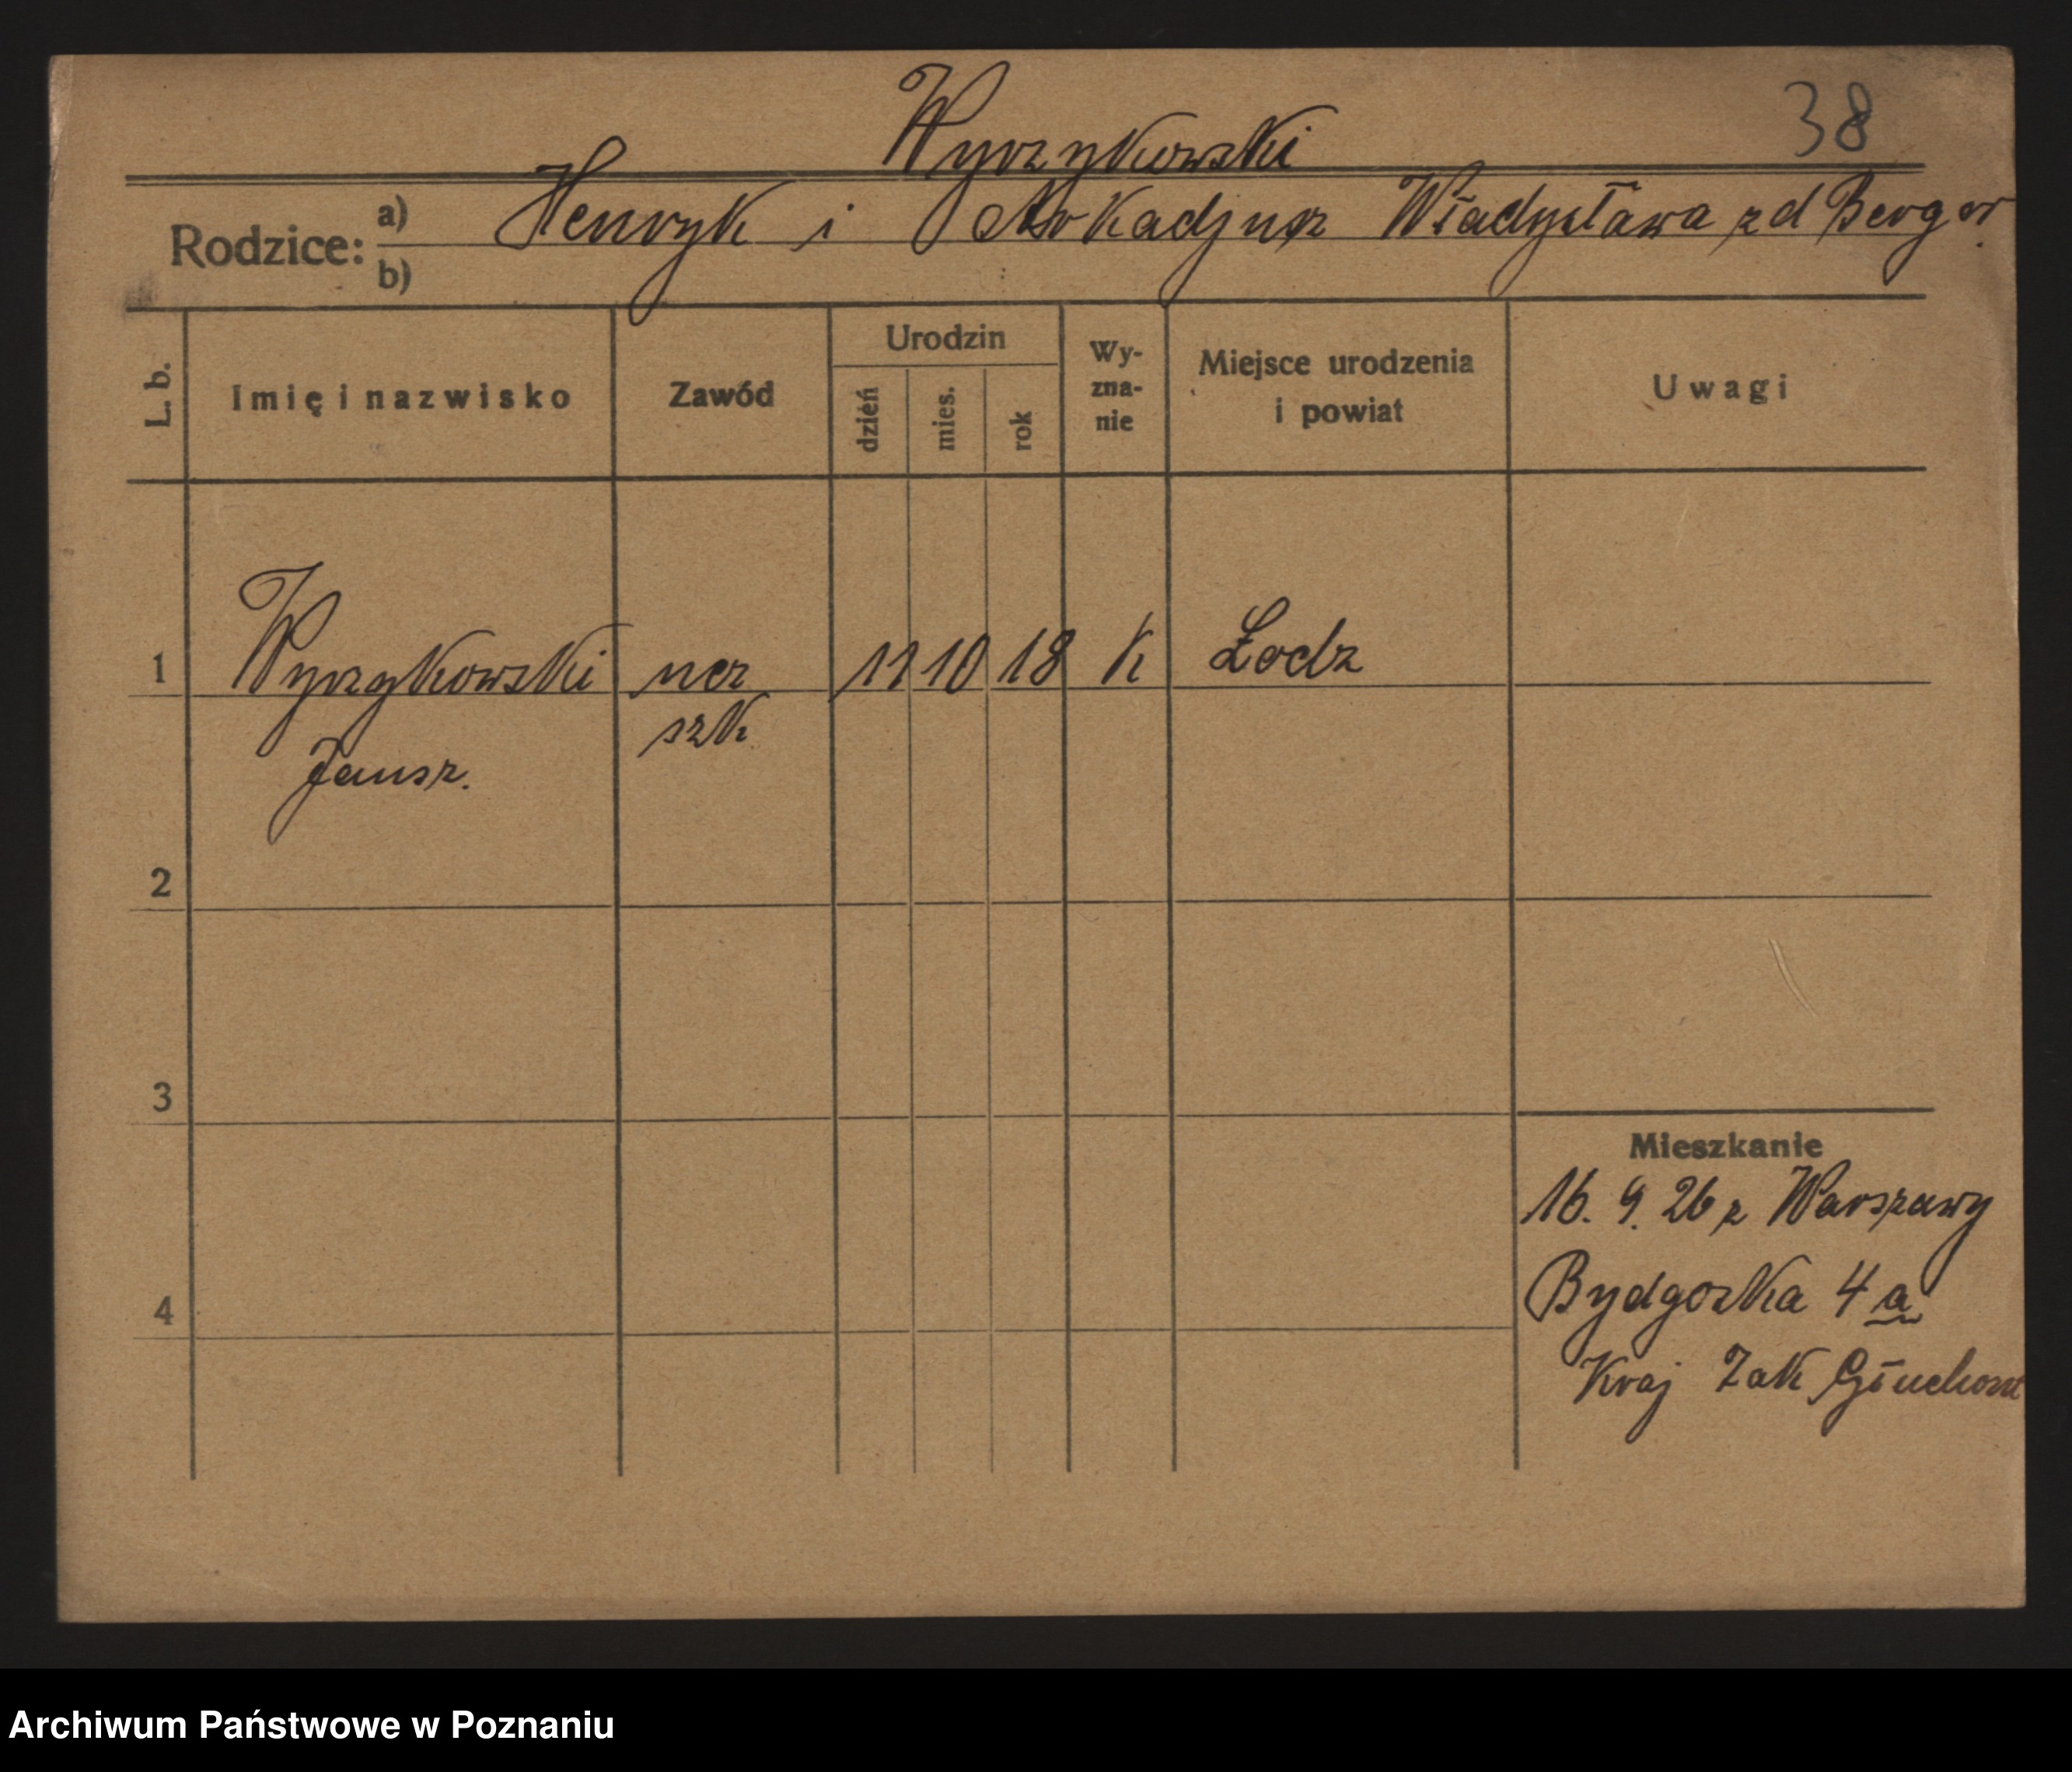 Wyrzykowski
38
Rodzice: a) Henryk i Arkadjusz Władysława zd Berger.
b)
L. b.
Imię i nazwisko
Zawód
Urodzin
dzień
mies.
rok
Wy-
zna-
nie
Miejsce urodzenia
i powiat
Uwagi
1 Wyrzykowski ucz 11 10 18 K Łodz
szk
Janusz.
2
3
Mieszkanie
16. 9. 26 z Warszawy
Bydgoska 4a
4
Kraj Zak Głuchon
Archiwum Państwowe w Poznaniu